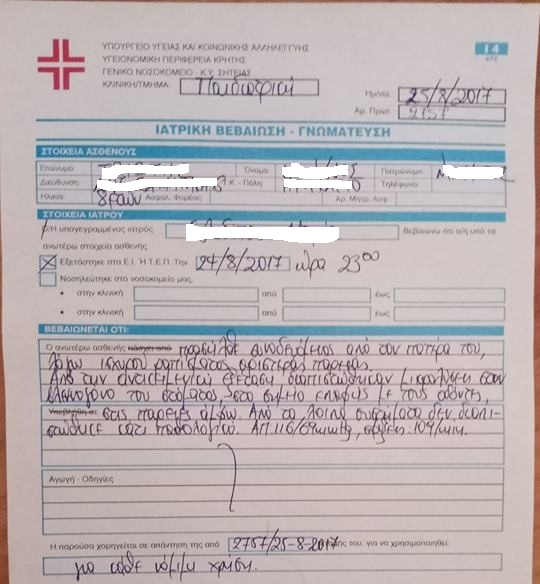 ΥΠΟΥΡΓΕΙΟ ΥΓΕΙΑΣ ΚΑΙ ΚΟΙΝΩΝΙΚΗΣ ΑΛΛΗΛΕΓΓΥΗΣ
ΥΓΕΙΟΝΟΜΙΚΗ ΠΕΡΙΦΕΡΕΙΑ ΚΡΗΤΗΣ
ΓΕΝΙΚΟ ΝΟΣΟΚΟΜΕΙΟ - Κ.Υ. ΣΗΤΕΙΑΣ
ΚΛΙΝΙΚΗ/ΤΜΗΜΑ: Παιδιατρική
Ημ/νία: 25/8/2017
Αρ. Πρωτ. 2757
ΙΑΤΡΙΚΗ ΒΕΒΑΙΩΣΗ - ΓΝΩΜΑΤΕΥΣΗ
ΣΤΟΙΧΕΙΑ ΑΣΘΕΝΟΥΣ
Επώνυμο: Όνομα: Πατρώνυμο:
Διεύθυνση: Τ.Κ. - Πόλη Τηλέφωνο:
Ηλικία: 8 ετών Ασφαλ. Φορέας: Αρ. Μητρ. Ασφ.
ΣΤΟΙΧΕΙΑ ΙΑΤΡΟΥ
Ο/Η υπογεγραμμένος ιατρός Βεβαιώνω ότι ο/η υπό τα
ανωτέρω στοιχεία ασθενής
Εξετάστηκε στα Ε.Ι. /Η Τ.Ε.Π. Την 24/8/2017 ώρα 23⁰⁰
Νοσηλεύτηκε στο νοσοκομείο μας.
• στην κλινική από έως
• στην κλινική από έως
ΒΕΒΑΙΩΝΕΤΑΙ ΟΤΙ:
Ο ανωτέρω ασθενής πάσχει από προσήλθε συνοδευόμενος από τον πατέρα του,
λόγω ισχυρού ραπίσματος αριστερής παρειάς.
Από την αντικειμενική εξέταση διαπιστώθηκαν μικρολύσεις στον
βλεννογόνο του στόματος, στο σημείο επαφής με τους οδόντες,
Υπεβλήθη σε στις παρειές άμφω. Από τα λοιπά συστήματα δεν διαπι-
στώθηκε κάτι παθολογικό. ΑΠ: 116/69mmHg, σφύξεις: 109/min.
Αγωγή - Οδηγίες
Η παρούσα χορηγείται σε απάντηση της από 2757/25-8-2017 του, για να χρησιμοποιηθεί
για κάθε νόμιμη χρήση.